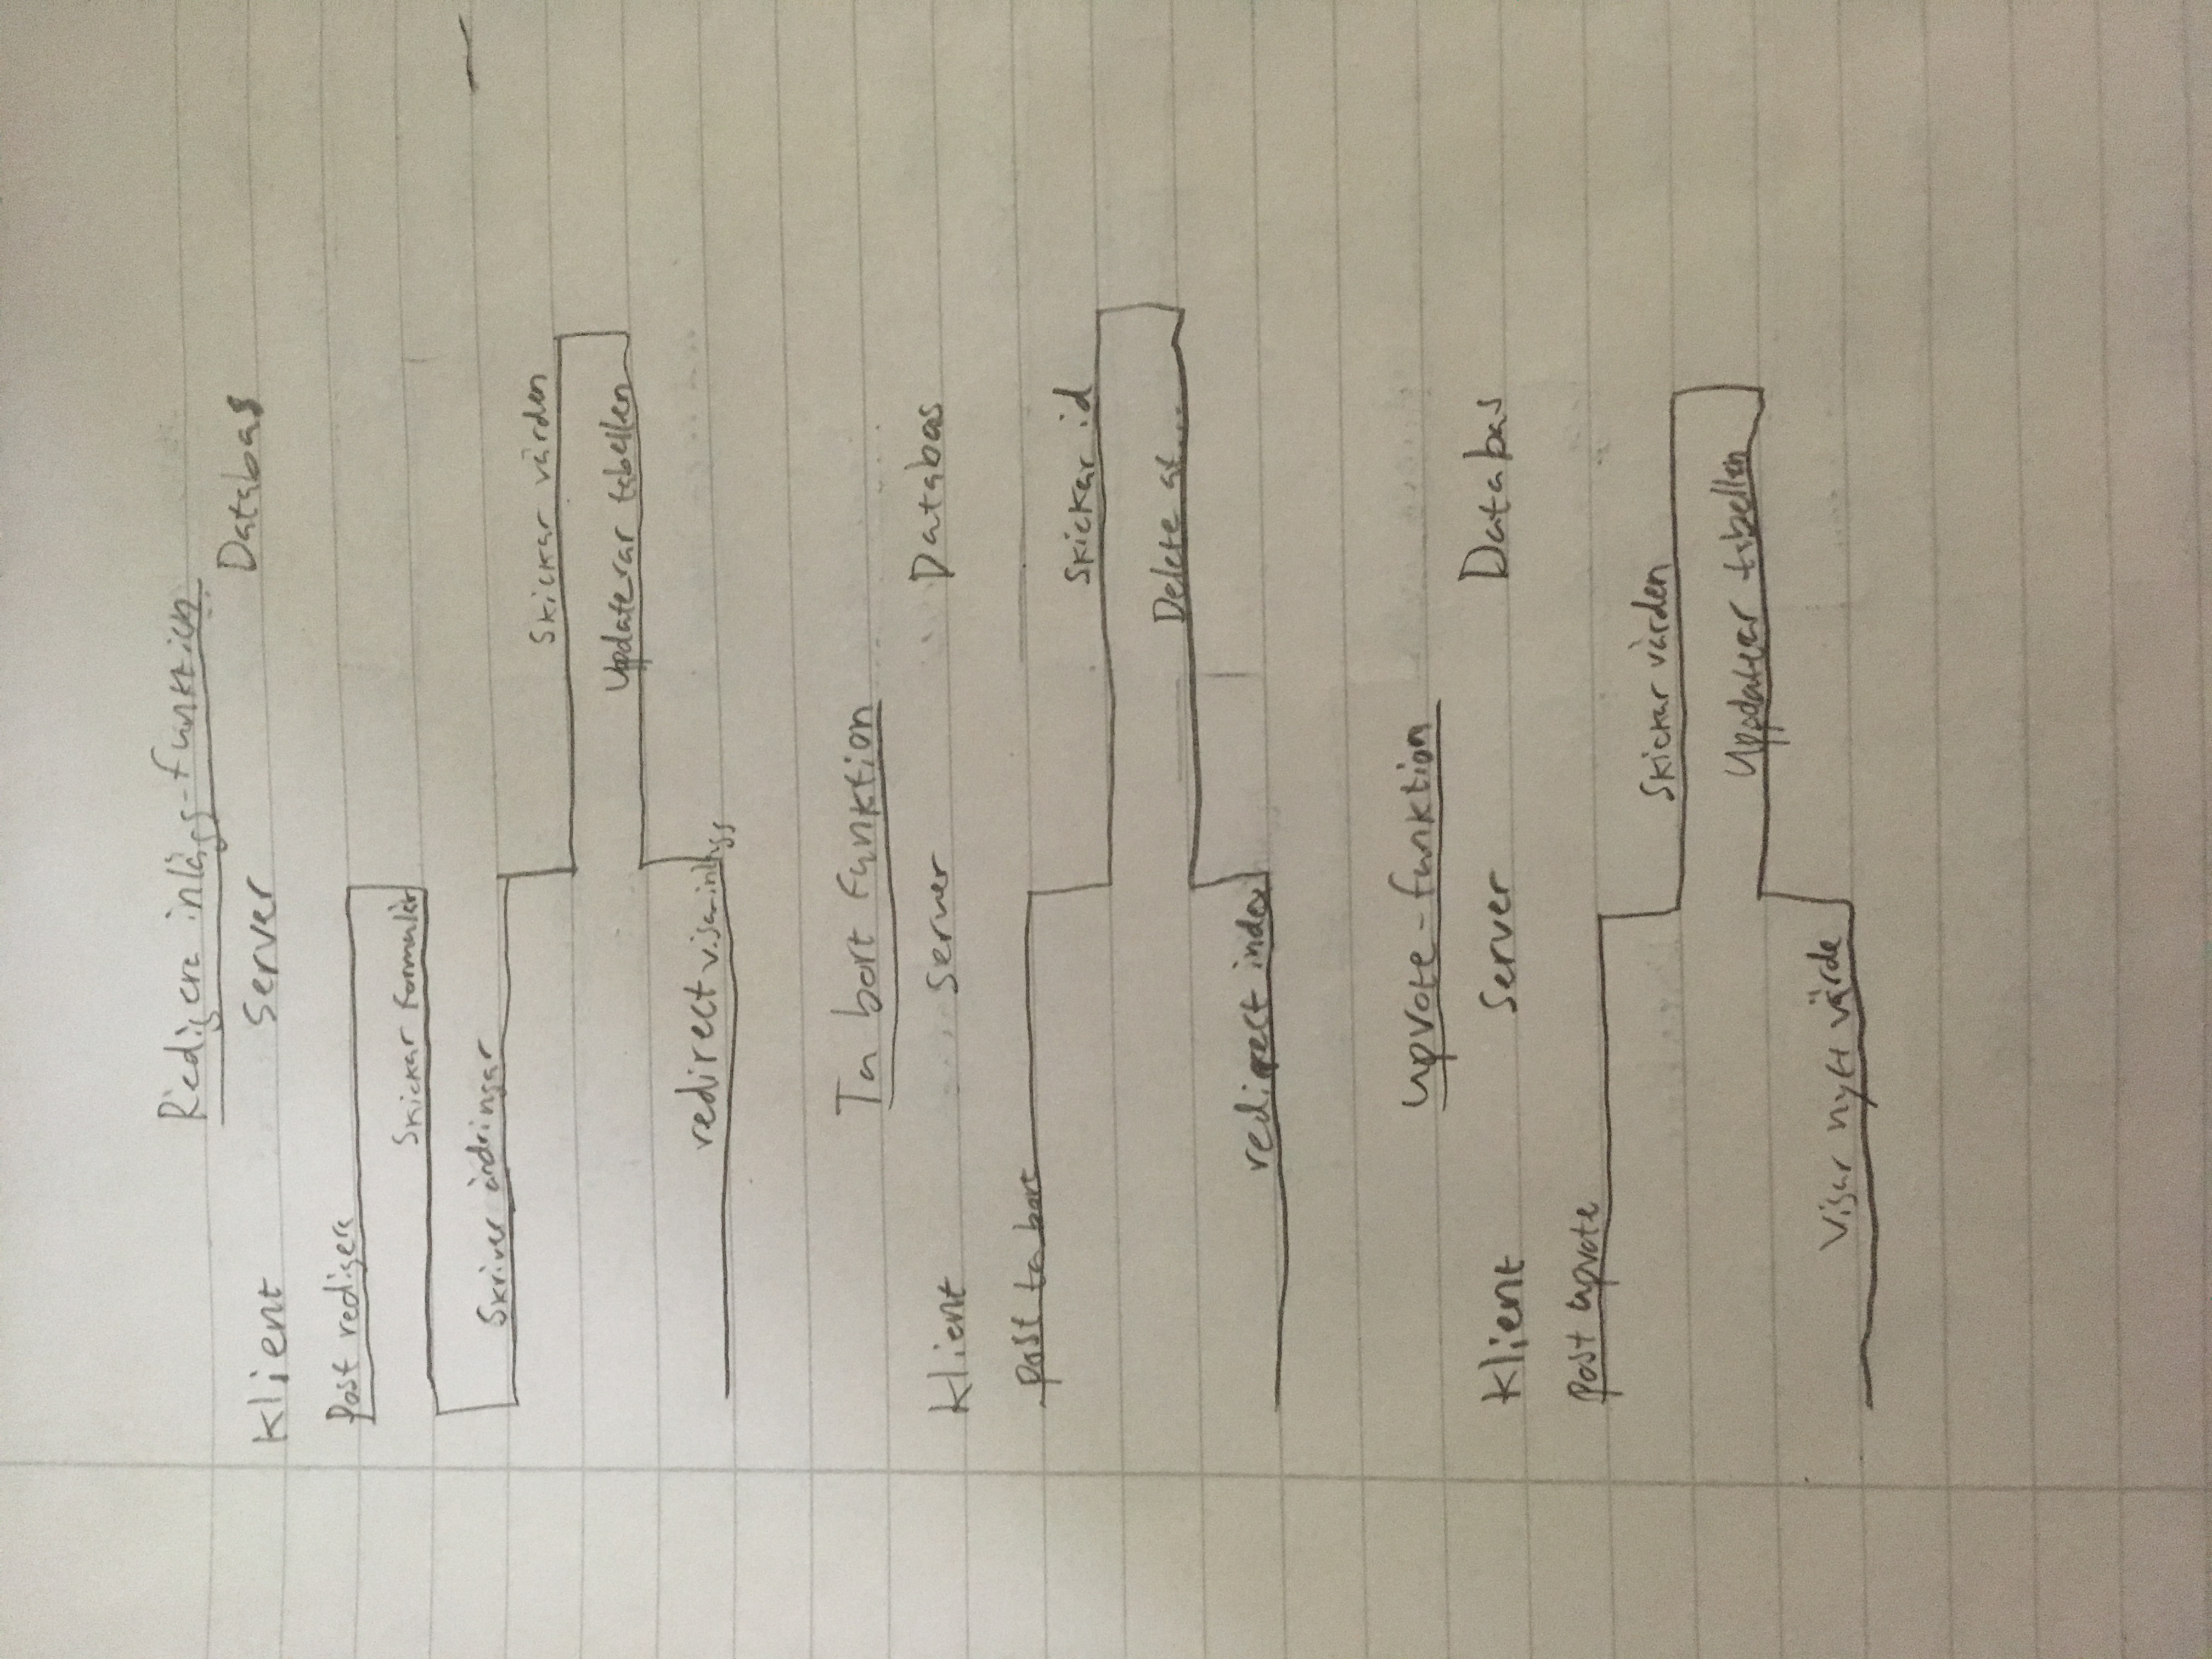 Redigera inlägg-funktion
Klient Server Databas
Post redigera
Skickar formulär
Skriver ändringar
Skickar värden
Uppdaterar tabellen
redirect visa-inlägg
Ta bort funktion
Klient Server Databas
post ta bort
Skickar id
Delete at...
redirect index
Upvote-funktion
Klient Server Databas
post upvote
Skickar värden
Uppdaterar tabellen
Visar nytt värde